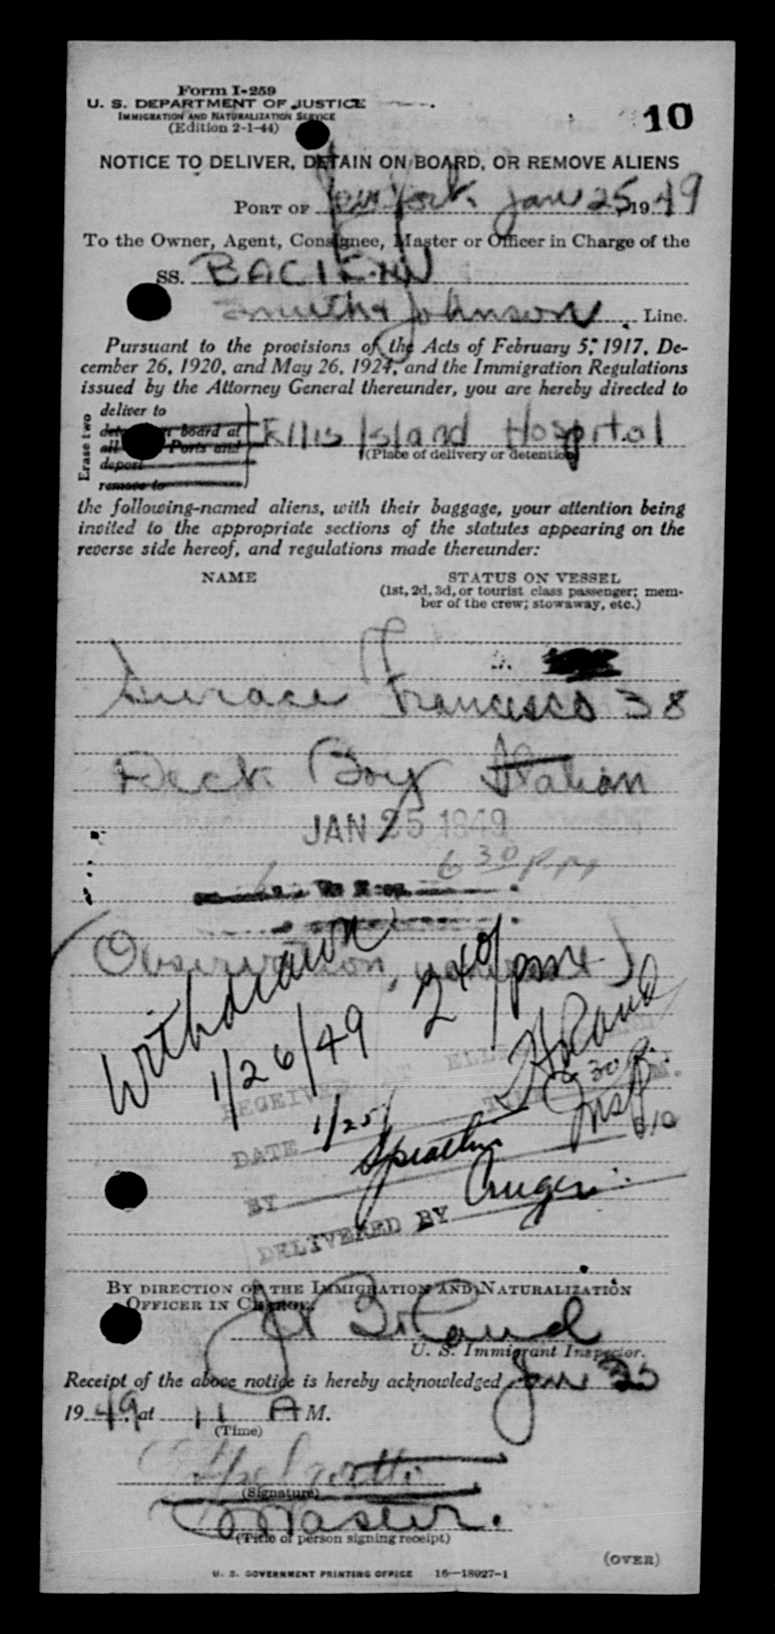 Form I-259
U. S. DEPARTMENT OF JUSTICE
IMMIGRATION AND NATURALIZATION SERVICE
(Edition 2-1-44)
10
NOTICE TO DELIVER, DETAIN ON BOARD, OR REMOVE ALIENS
PORT OF New York. Jan 25, 1949
To the Owner, Agent, Consignee, Master or Officer in Charge of the
SS.
Smith & Johnson Line.
Pursuant to the provisions of the Acts of February 5, 1917, De-
cember 26, 1920, and May 26, 1924, and the Immigration Regulations
issued by the Attorney General thereunder, you are hereby directed to
Erase two
deliver to
detain on board at
all Ports and
deport
remove to
Ellis Island Hospital
(Place of delivery or detention)
the following-named aliens, with their baggage, your attention being
invited to the appropriate sections of the statutes appearing on the
reverse side hereof, and regulations made thereunder:
NAME STATUS ON VESSEL
(1st, 2d, 3d, or tourist class passenger; mem-
ber of the crew; stowaway, etc.)
Francisco 38
Deck Boy Italian
JAN 25 1949
6 30 P M
(Observation
Withdrawn
1/26/49 2 40/pm
RECEIVED AT ELLIS
DATE 1/25/
BY
DELIVERED BY
Insp
BY DIRECTION OF THE IMMIGRATION AND NATURALIZATION
OFFICER IN CHARGE:
U. S. Immigrant Inspector.
Receipt of the above notice is hereby acknowledged Jan 25
1949 at 11 A M.
(Time)
(Signature)
Master.
(Title of person signing receipt)
(OVER)
U. S. GOVERNMENT PRINTING OFFICE 16—18027-1